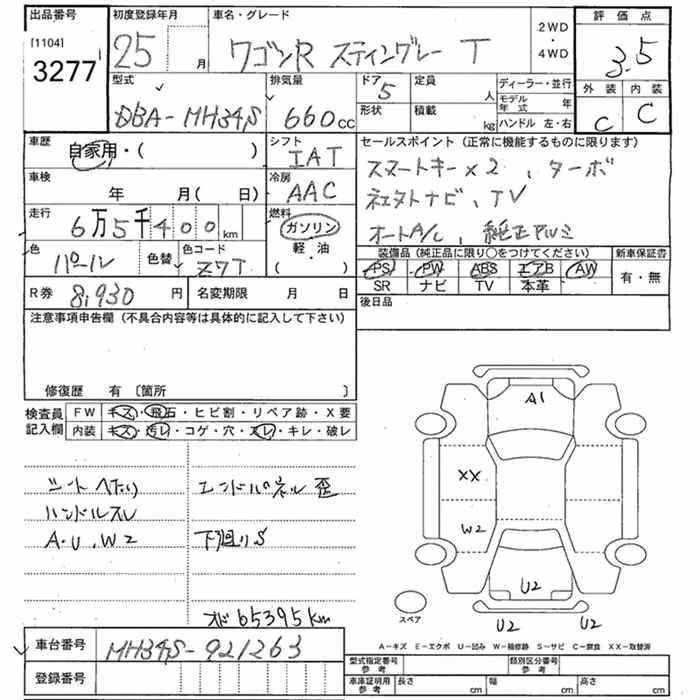 出品番号 初度登録年月 車名・グレード 2WD・4WD 評価点
[1104] 3277
25 月 ワゴンR スティングレー T 3.5
型式 排気量 ドア 定員 ディーラー・並行 外装 内装
DBA-MH34S 660cc 5 人 モデル年式 年 C C
形状 積載 kg ハンドル 左・右
車歴 自家用・( ) シフト IAT
セールスポイント (正常に機能するものに限ります)
スマートキー×2、ターボ
車検 年 月( 日) 冷房 AAC
社外ナビ、TV
走行 6万5千400km 燃料 ガソリン 軽・油 ( )
オートA/C、純正アルミ
色 パール 色替 色コード Z7T
装備品 (純正品に限り○をつけてください) 新車保証書
PS PW ABS エアB AW 有・無
SR ナビ TV 本革
R券 8,930円 名変期限 月 日
後日品
注意事項申告欄 (不具合内容等は具体的に記入して下さい)
修復歴 有 〔箇所 〕
検査員記入欄 FW キズ・飛石・ヒビ割・リペア跡・X要
内装 キズ・汚レ・コゲ・穴・スレ・キレ・破レ
シートへたり エンドパネル歪
ハンドルスレ
A・U、W2 下廻りS
メーター65395km
A1
XX
W2
U2
U2 U2
スペア
A-キズ E-エクボ U-凹み W-補修跡 S-サビ C-腐食 XX-取替済
車台番号 MH34S-921263
登録番号
型式指定番号 参考 類別区分番号 参考
車庫証明用 参考 長さ cm 幅 cm 高さ cm